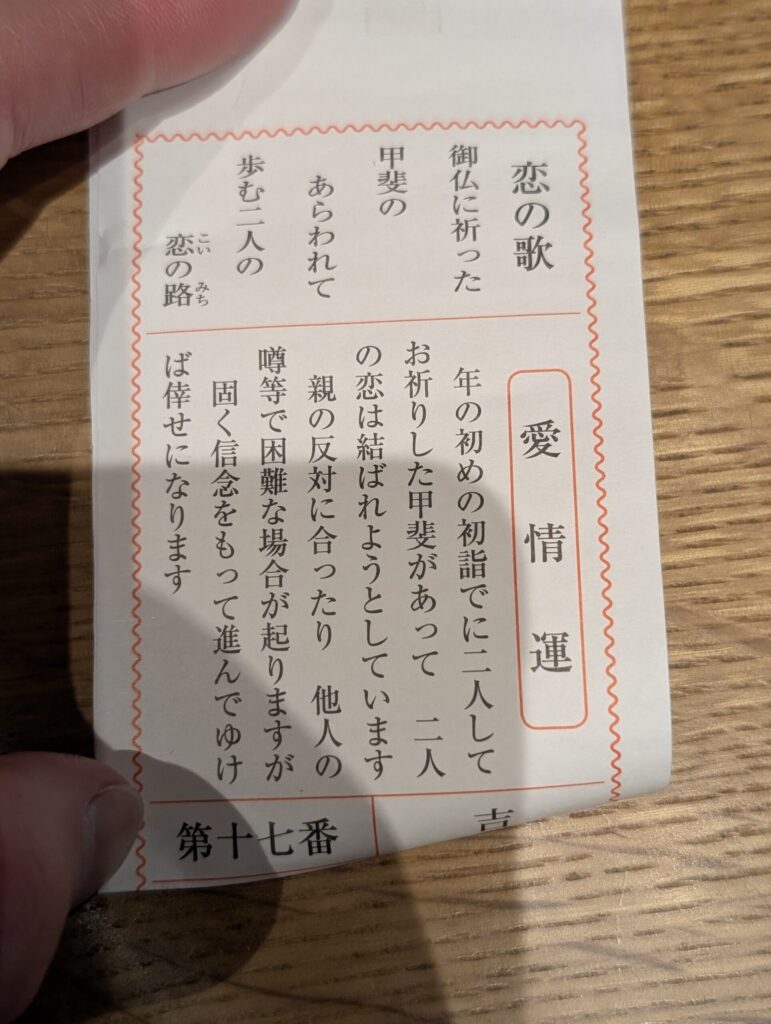 恋の歌
御仏に祈った
甲斐の
あらわれて
歩む二人の
恋の路
こい みち
愛情運
年の初めの初詣でに二人して
お祈りした甲斐があって 二人
の恋は結ばれようとしています
親の反対に合ったり 他人の
噂等で困難な場合が起りますが
固く信念をもって進んでゆけ
ば倖せになります
第十七番